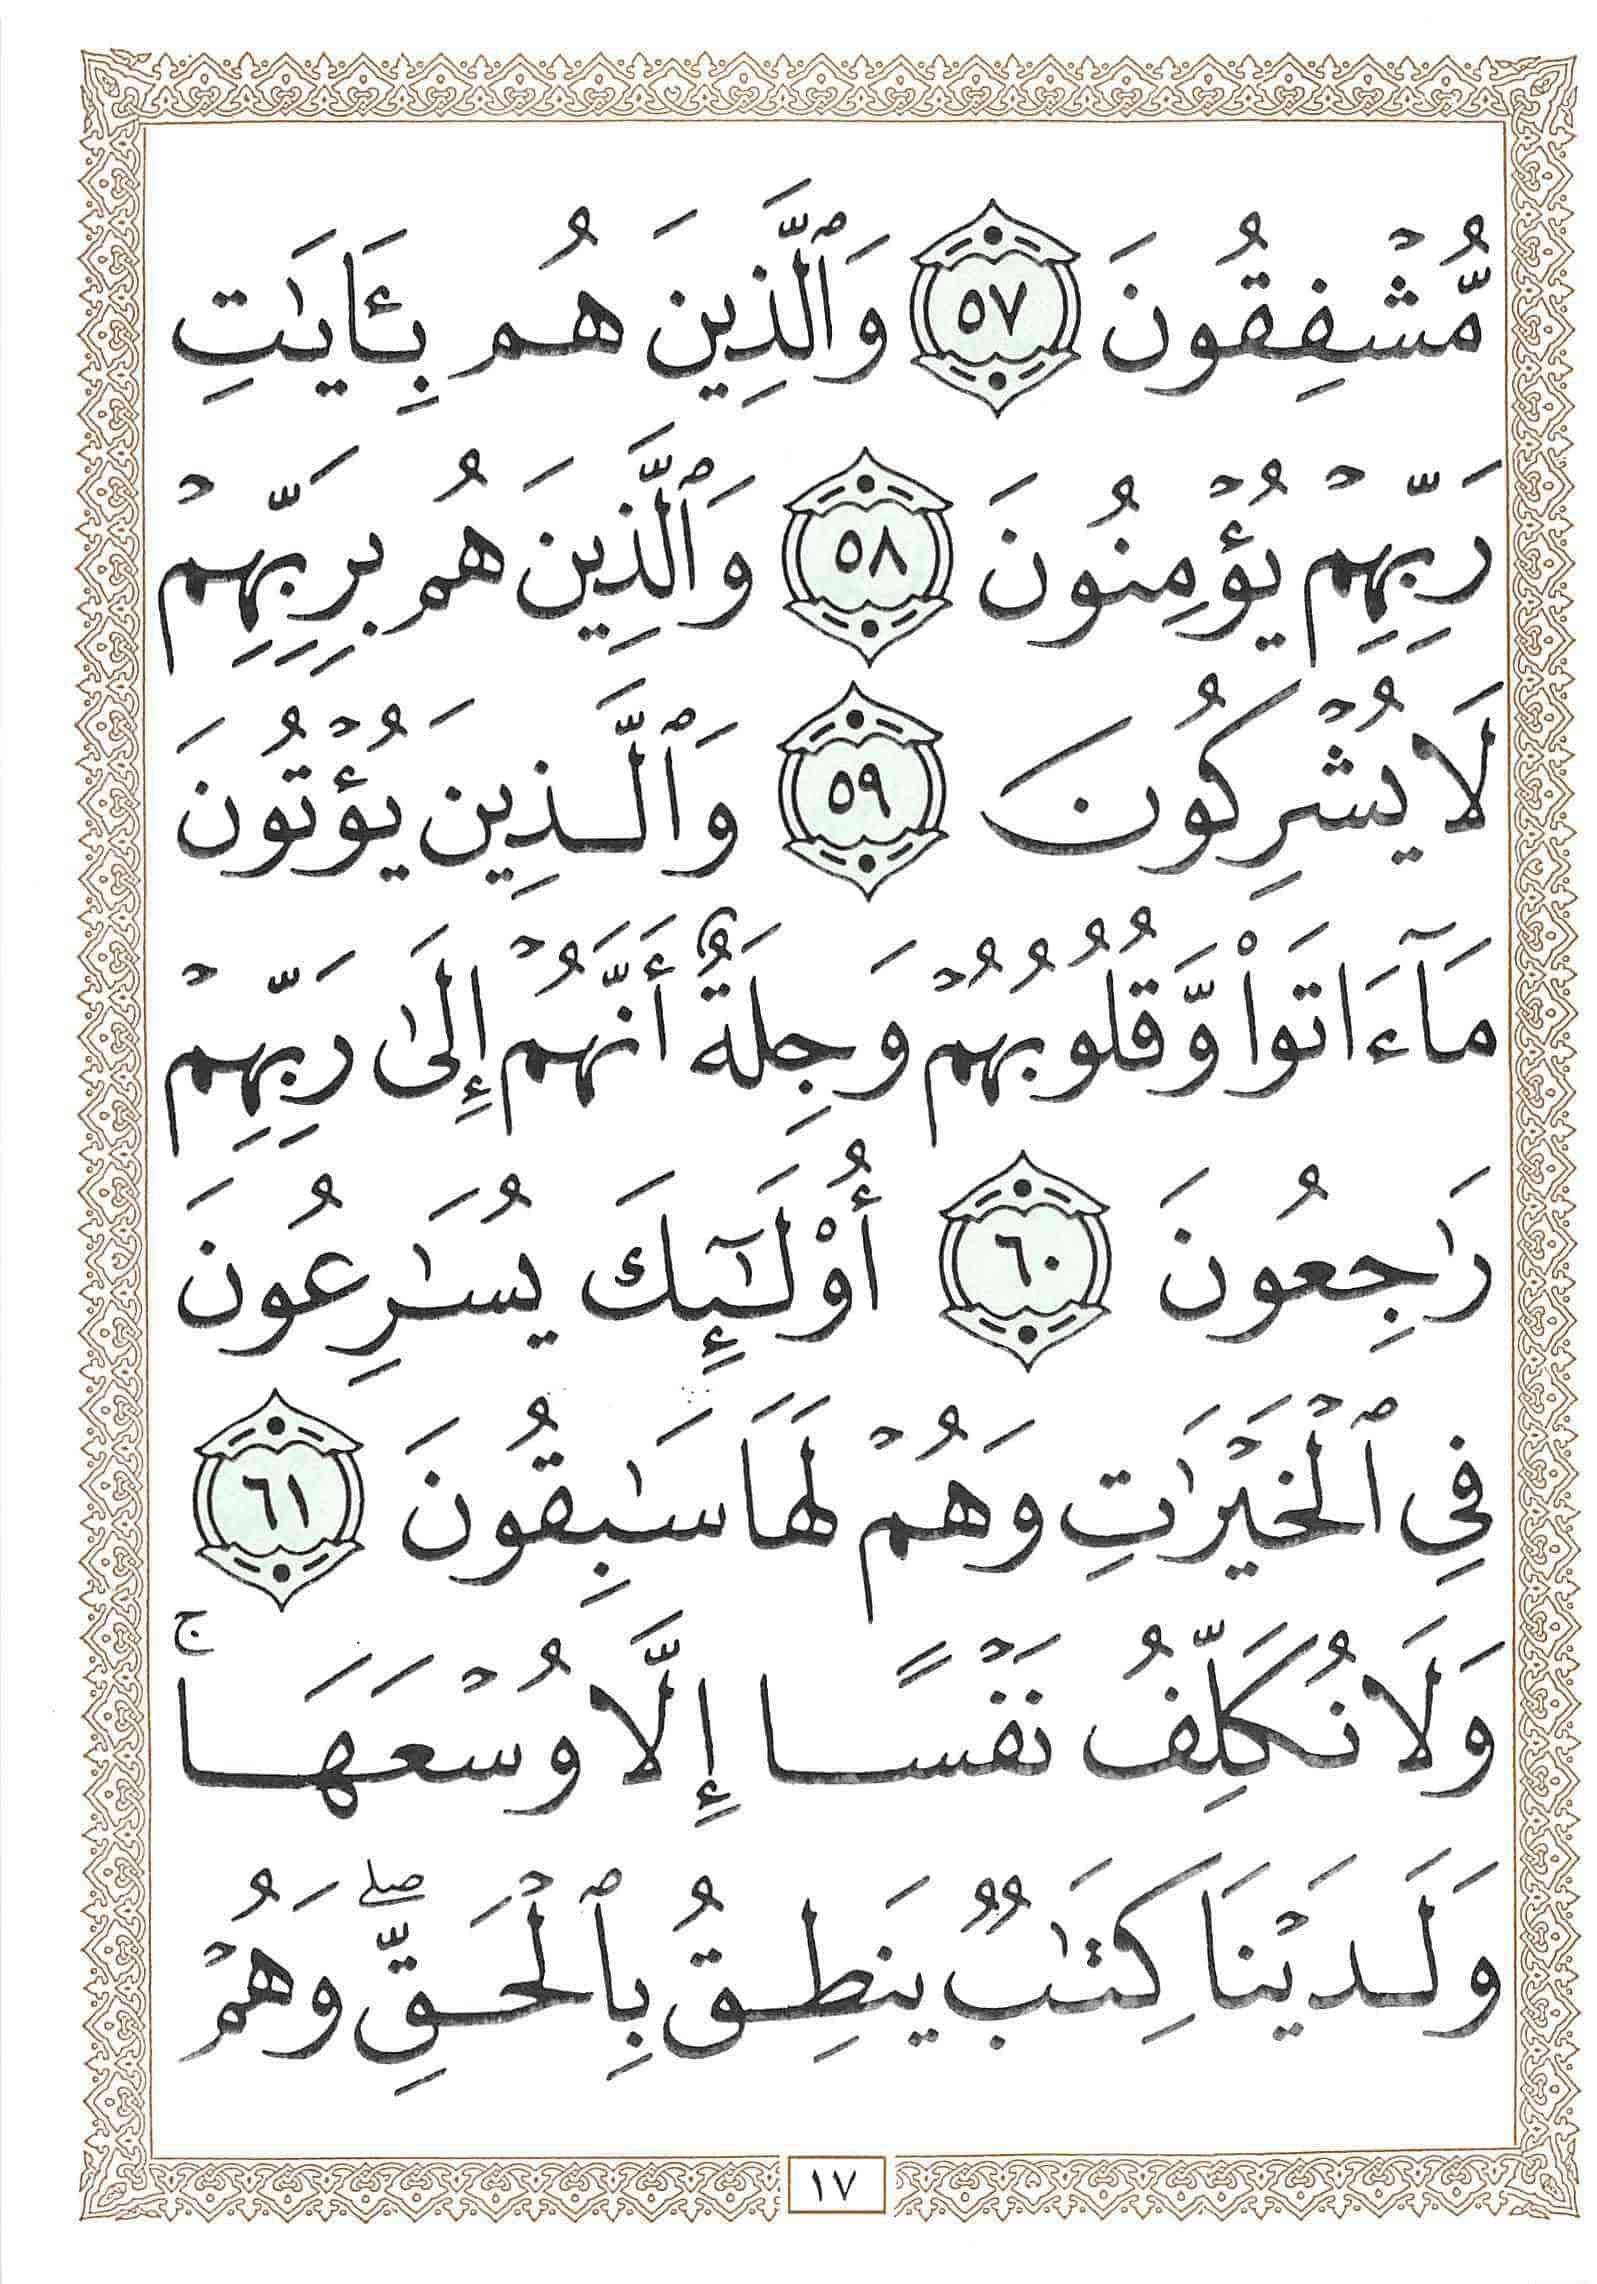 مُّشْفِقُونَ ٥٧ وَٱلَّذِينَ هُم بِـَٔايَـٰتِ
رَبِّهِمْ يُؤْمِنُونَ ٥٨ وَٱلَّذِينَ هُم بِرَبِّهِمْ
لَا يُشْرِكُونَ ٥٩ وَٱلَّذِينَ يُؤْتُونَ
مَآ ءَاتَوا۟ وَّقُلُوبُهُمْ وَجِلَةٌ أَنَّهُمْ إِلَىٰ رَبِّهِمْ
رَٰجِعُونَ ٦٠ أُو۟لَـٰٓئِكَ يُسَـٰرِعُونَ
فِي ٱلْخَيْرَٰتِ وَهُمْ لَهَا سَـٰبِقُونَ ٦١
وَلَا نُكَلِّفُ نَفْسًا إِلَّا وُسْعَهَا ۚ
وَلَدَيْنَا كِتَـٰبٌ يَنطِقُ بِٱلْحَقِّ ۖ وَهُمْ
١٧